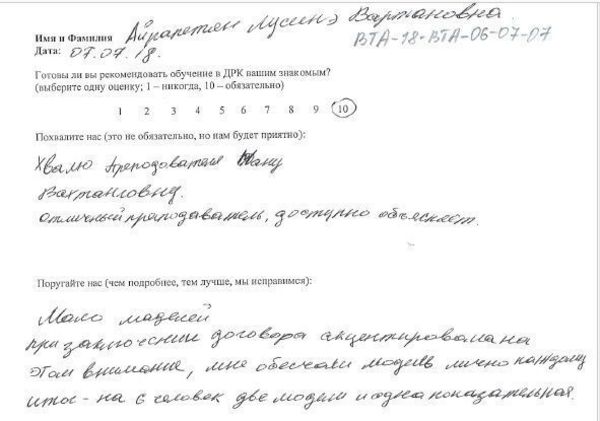 Имя и Фамилия Айрапетян Лусинэ Вартановна
Дата: 07.07.18. ВТА-18-ВТА-06-07-07
Готовы ли вы рекомендовать обучение в ДРК вашим знакомым?
(выберите одну оценку; 1 – никогда, 10 – обязательно)
1 2 3 4 5 6 7 8 9 10
Похвалите нас (это не обязательно, но нам будет приятно):
Хвалю преподователя Жану
Вахтанговну.
отличный преподаватель, доступно объясняет.
Поругайте нас (чем подробнее, тем лучше, мы исправимся):
Мало маделей
при заключении договора акцентировала на
этом внимание, мне обещали модель лично каждому
итог - на 6 человек две модели и одна показательная.